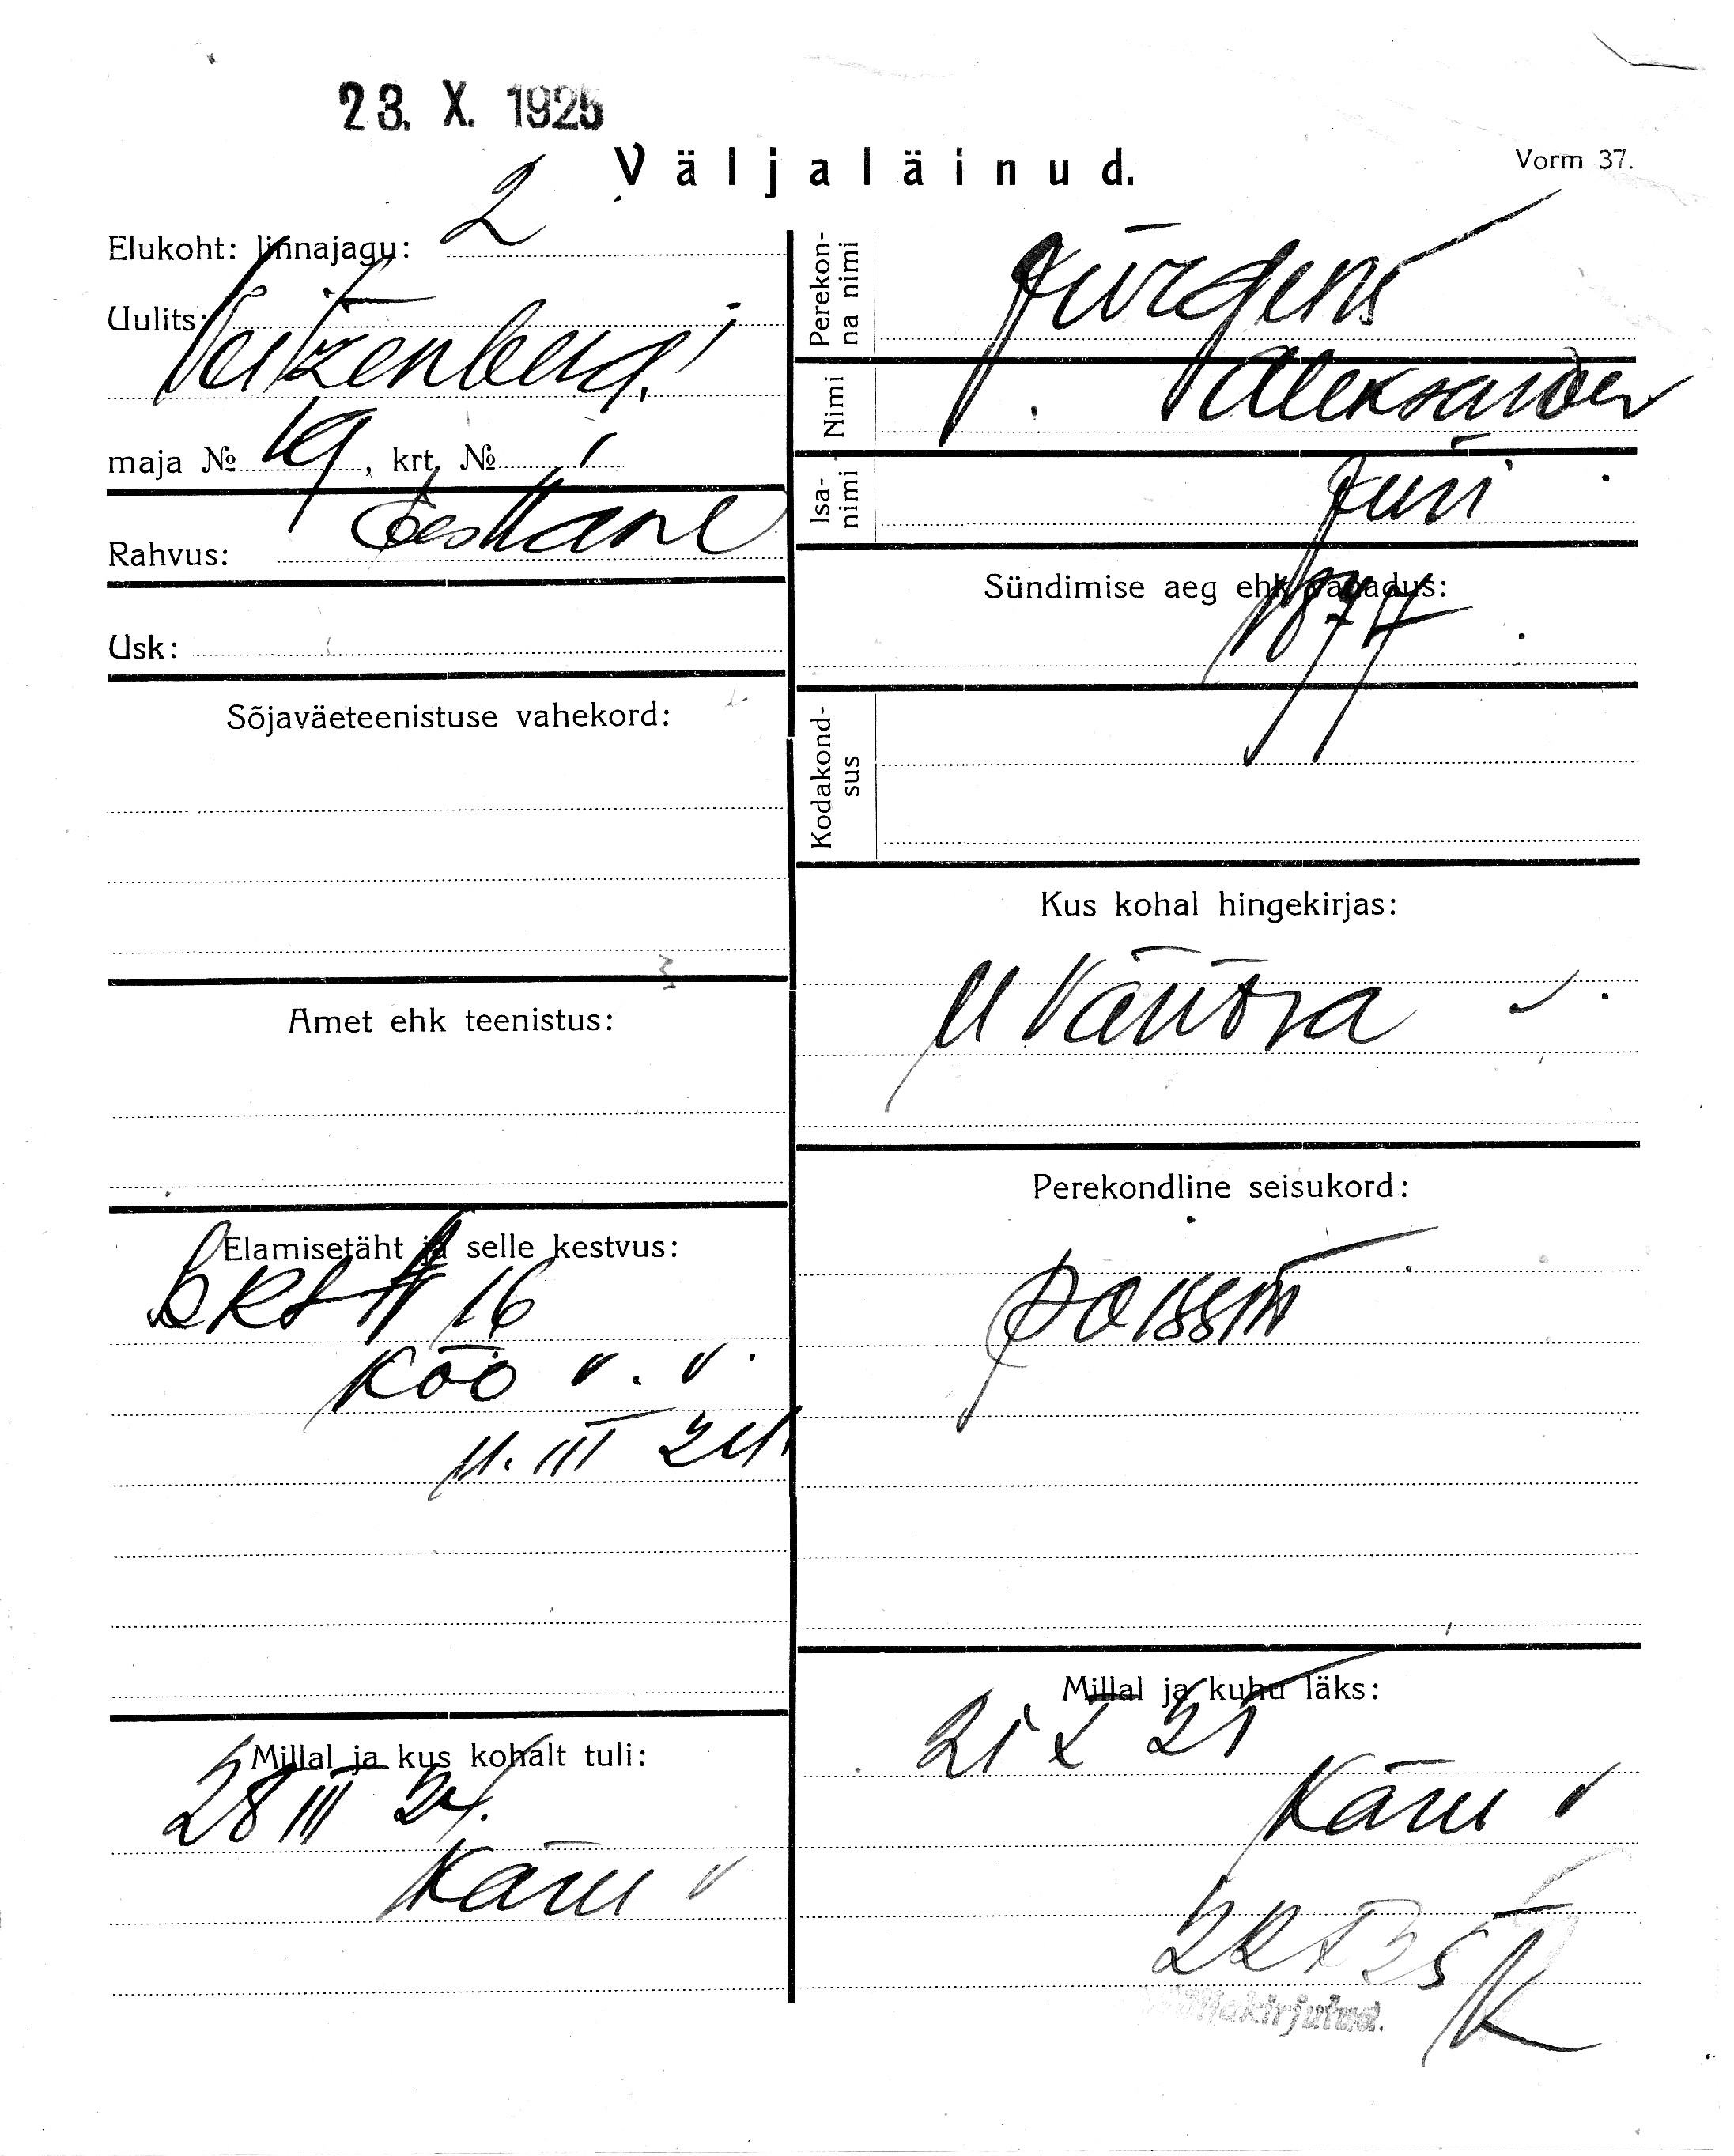 23. X. 1925
Väljaläinud.
Vorm 37.
Elukoht: linnajagu: 2
Uulits: Veitzenbergi
maja № 19, krt. № 1
Rahvus: Eestlane
Usk:
Sõjaväeteenistuse vahekord:
Amet ehk teenistus:
Elamisetäht ja selle kestvus:
16
Kõo v. v.
11. III 24.
Millal ja kus kohalt tuli:
28 III 24.
Käru v
Perekonna nimi
Jürgens
Nimi
Aleksander
Isanimi
Jüri
Sündimise aeg ehk vanadus:
1874
Kodakondsus
Kus kohal hingekirjas:
Vändra v.
Perekondline seisukord:
poissm
Millal ja kuhu läks:
21 X 25
Käru v
22 X 25 K
Väljakirjutud.